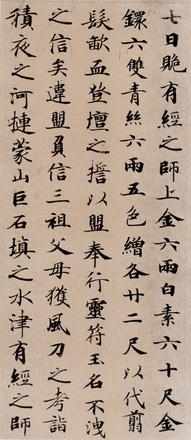 七日賍有經之師上金六兩白素六十尺金
鐶六雙青絲六兩五色繒各廿二尺以代翦
髮歃血登壇之誓以盟奉行靈符玉名不洩
之信矣違盟負信三祖父母獲風刀之考詣
積夜之河揵蒙山巨石填之水津有經之師